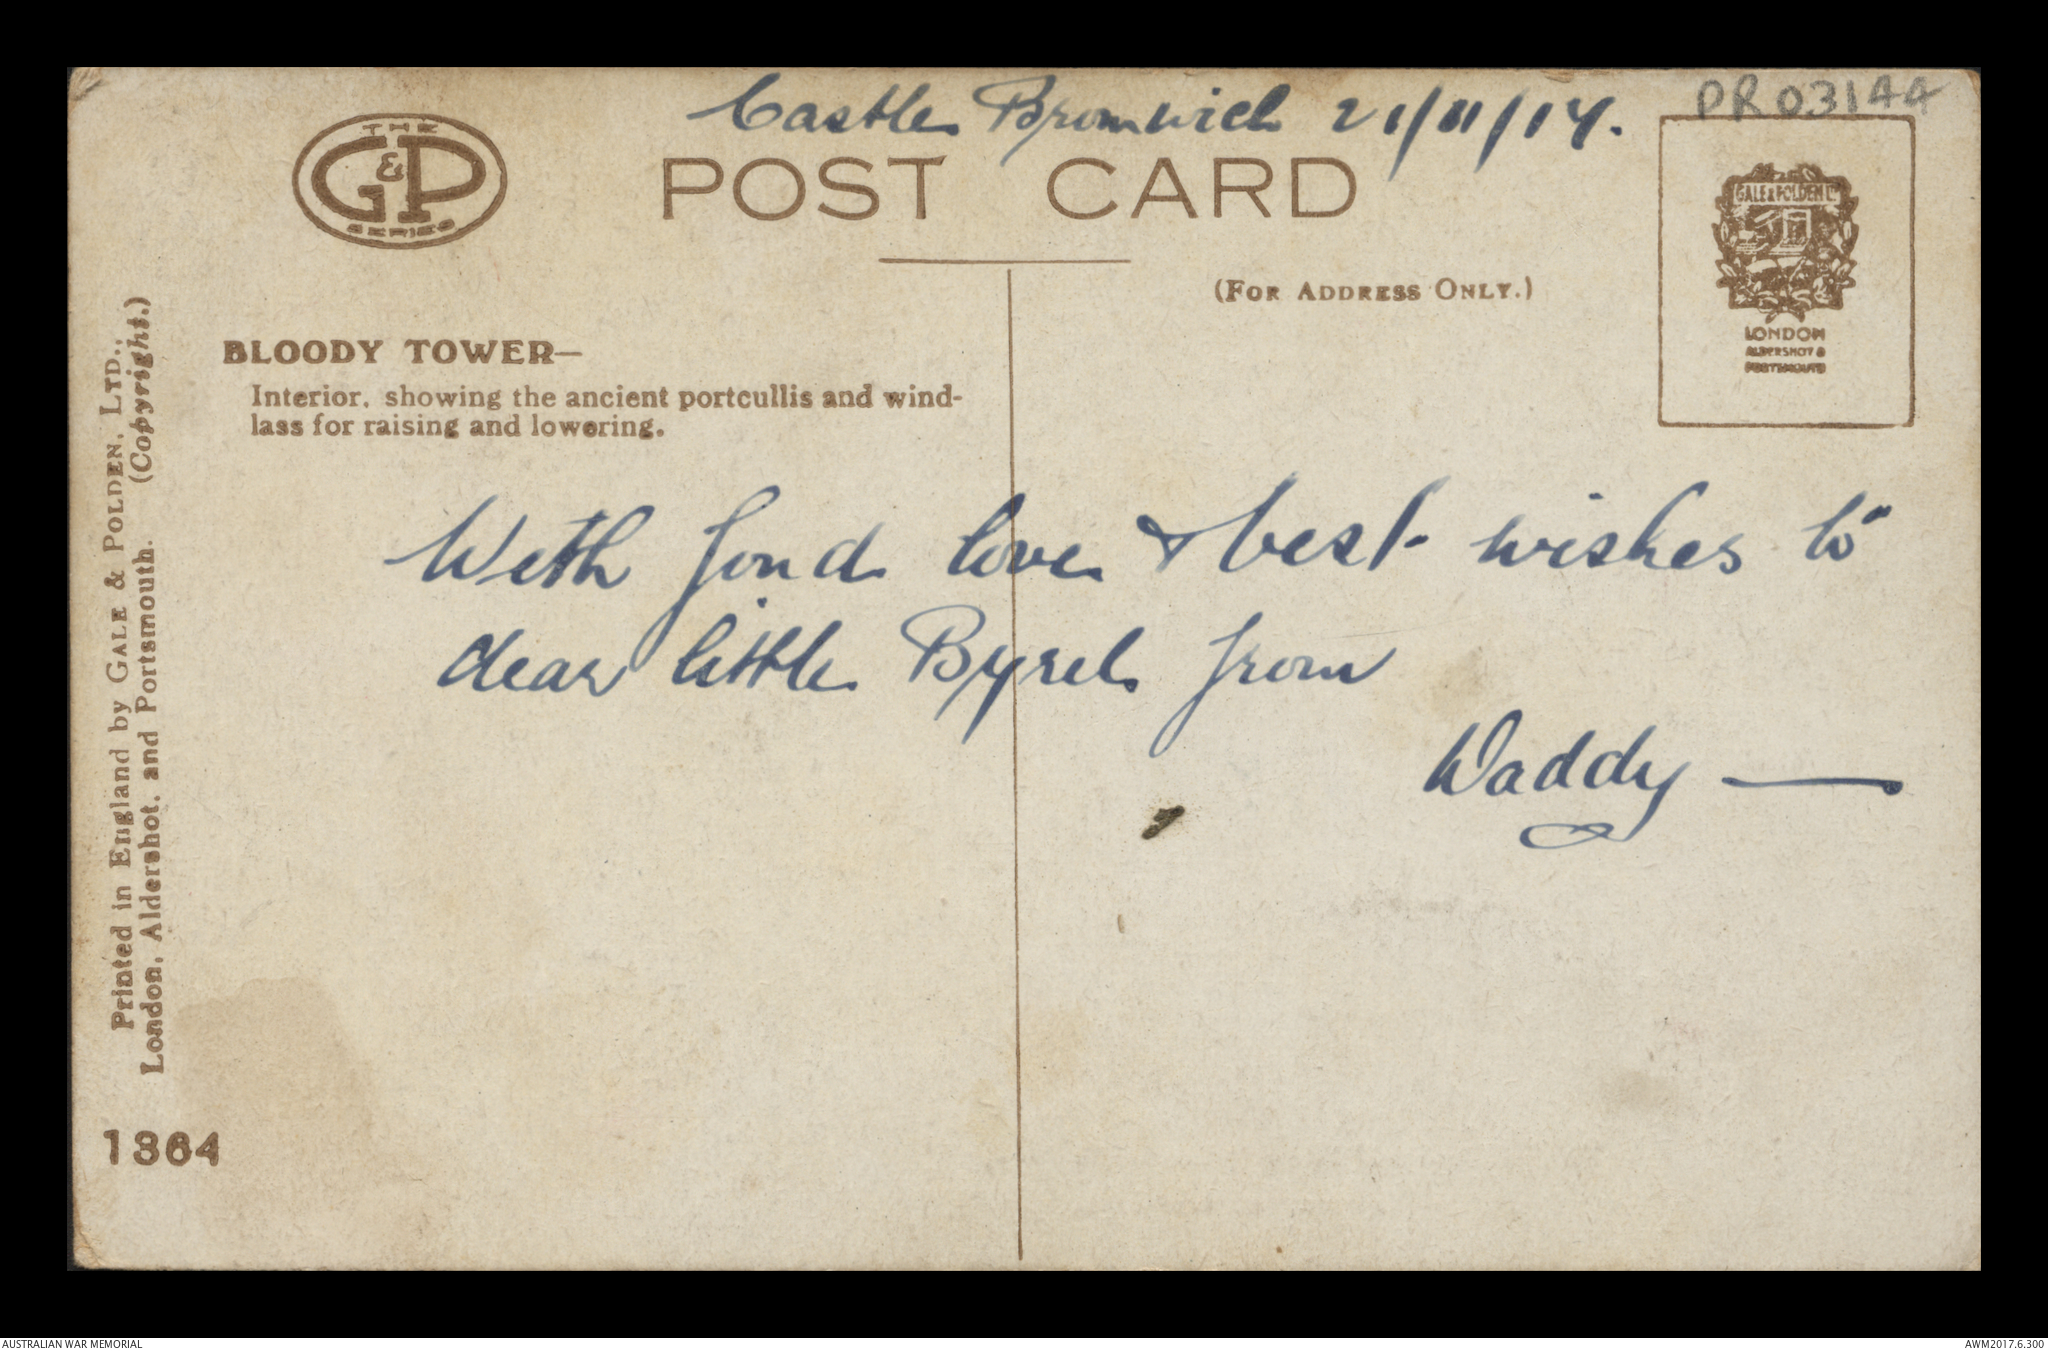 Castle Bromwich 21/11/17.
PR03144
THE
G&P
SERIES
POST CARD
GALE & POLDEN LTD
LONDON
ALDERSHOT &
PORTSMOUTH
(FOR ADDRESS ONLY.)
BLOODY TOWER—
Interior, showing the ancient portcullis and wind-
lass for raising and lowering.
With fond love & best wishes to
dear little Byrel from
Daddy —
Printed in England by GALE & POLDEN, LTD.,
London, Aldershot, and Portsmouth. (Copyright.)
1364
AUSTRALIAN WAR MEMORIAL
AWM2017.6.300